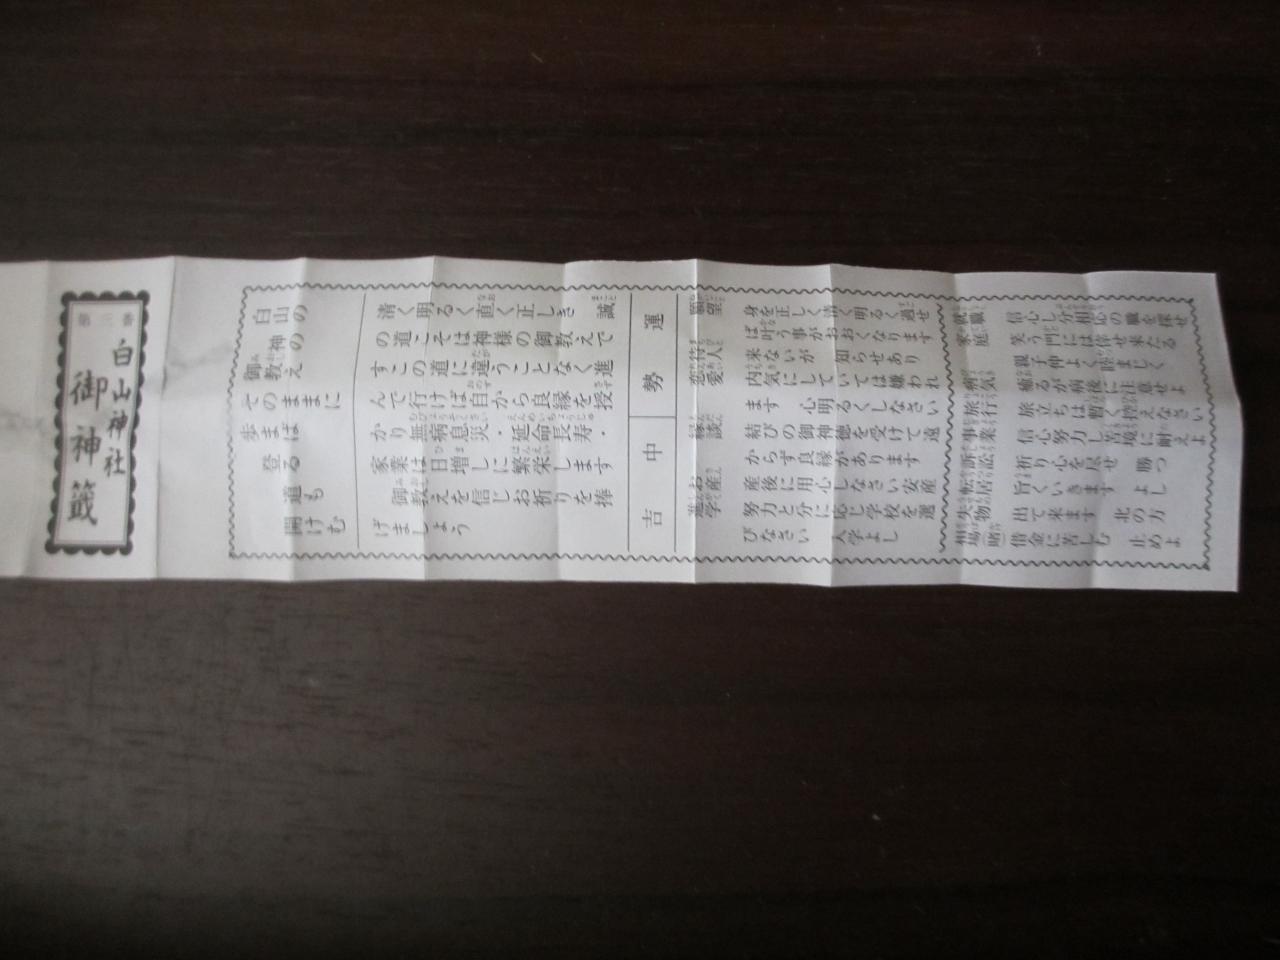 第三番
白山神社
御神籤
白山の
神の
御教え
そのままに
歩まば
登る
道も
開けむ
清く明るく直く正しき誠
の道こそは神様の御教えで
すこの道に違うことなく進
んで行けば自から良縁を授
かり無病息災・延命長寿・
家業は日増しに繁栄します
御教えを信じお祈りを捧
げましょう
運勢 中吉
願望 身を正しく清く明るく過せ
ば叶う事がおおくなります
待人 来ないが 知らせあり
恋愛 内気にしていては嫌われ
ます 心明るくしなさい
縁談 結びの御神徳を受けて遠
からず良縁があります
お産 産後に用心しなさい安産
進学 努力と分に応じ学校を選
びなさい 入学よし
就職 信心し分相応の職を探せ
家庭 笑う門には倖せ来たる
親子仲よく睦ましく
病気 癒るが病後に注意せよ
旅行 旅立ちは暫く控えなさい
事業 信心努力し苦境に耐えよ
訴訟 祈り心を尽せ 勝つ
転居 旨くいきます よし
失物 出て来ます 北の方
相場賭 借金に苦しむ 止めよ